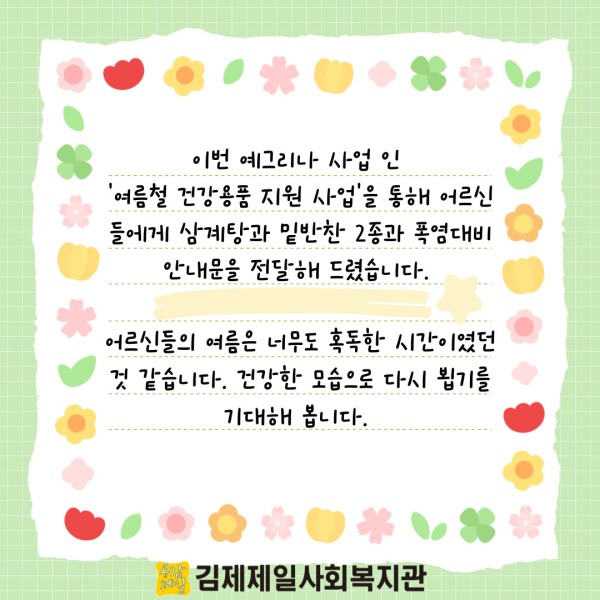 이번 예그리나 사업 인
'여름철 건강용품 지원 사업'을 통해 어르신
들에게 삼계탕과 밑반찬 2종과 폭염대비
안내문을 전달해 드렸습니다.
어르신들의 여름은 너무도 혹독한 시간이였던
것 같습니다. 건강한 모습으로 다시 뵙기를
기대해 봅니다.
김제제일사회복지관